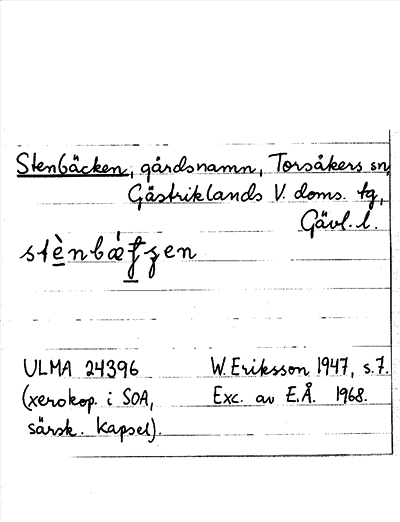 Stenbäcken, gårdsnamn, Torsåkers sn,
Gästriklands V. doms. tg,
Gävl. l.
ULMA 24396 W. Eriksson 1947, s. 7.
(xerokop. i SOA, Exc. av E.Å. 1968.
särsk. kapsel).